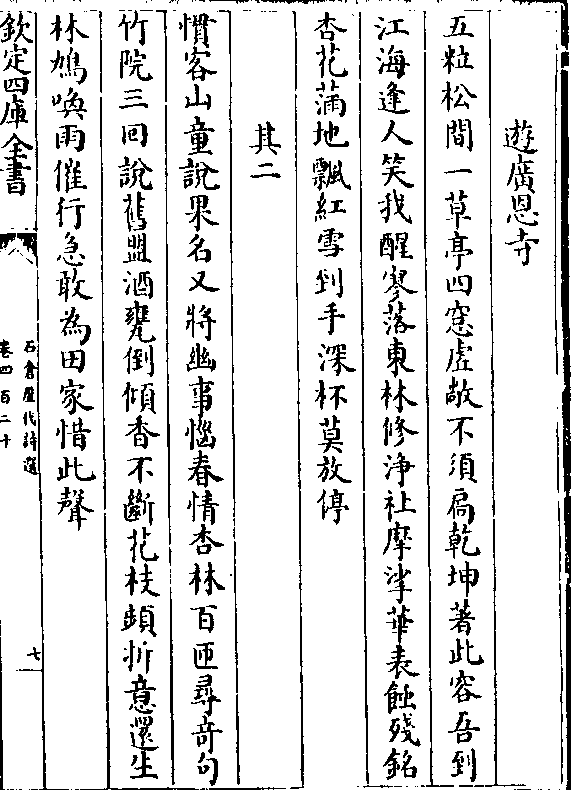 遊廣恩寺
五粒松間一草亭四窻虚敞不須扃乾坤著此容吾到
江海逢人笑我醒寥落東林修浄社摩挲華表蝕殘銘
杏花滿地飄紅雪到手深杯莫放停
其二
慣客山童說果名又將幽事惱春情杏林百匝尋奇句
竹院三回說舊盟酒甕倒傾香不斷花枝頻折意還生
林鳩喚雨催行急敢為田家惜此聲
欽定四庫全書
石倉歷代詩選
卷四百二十
七